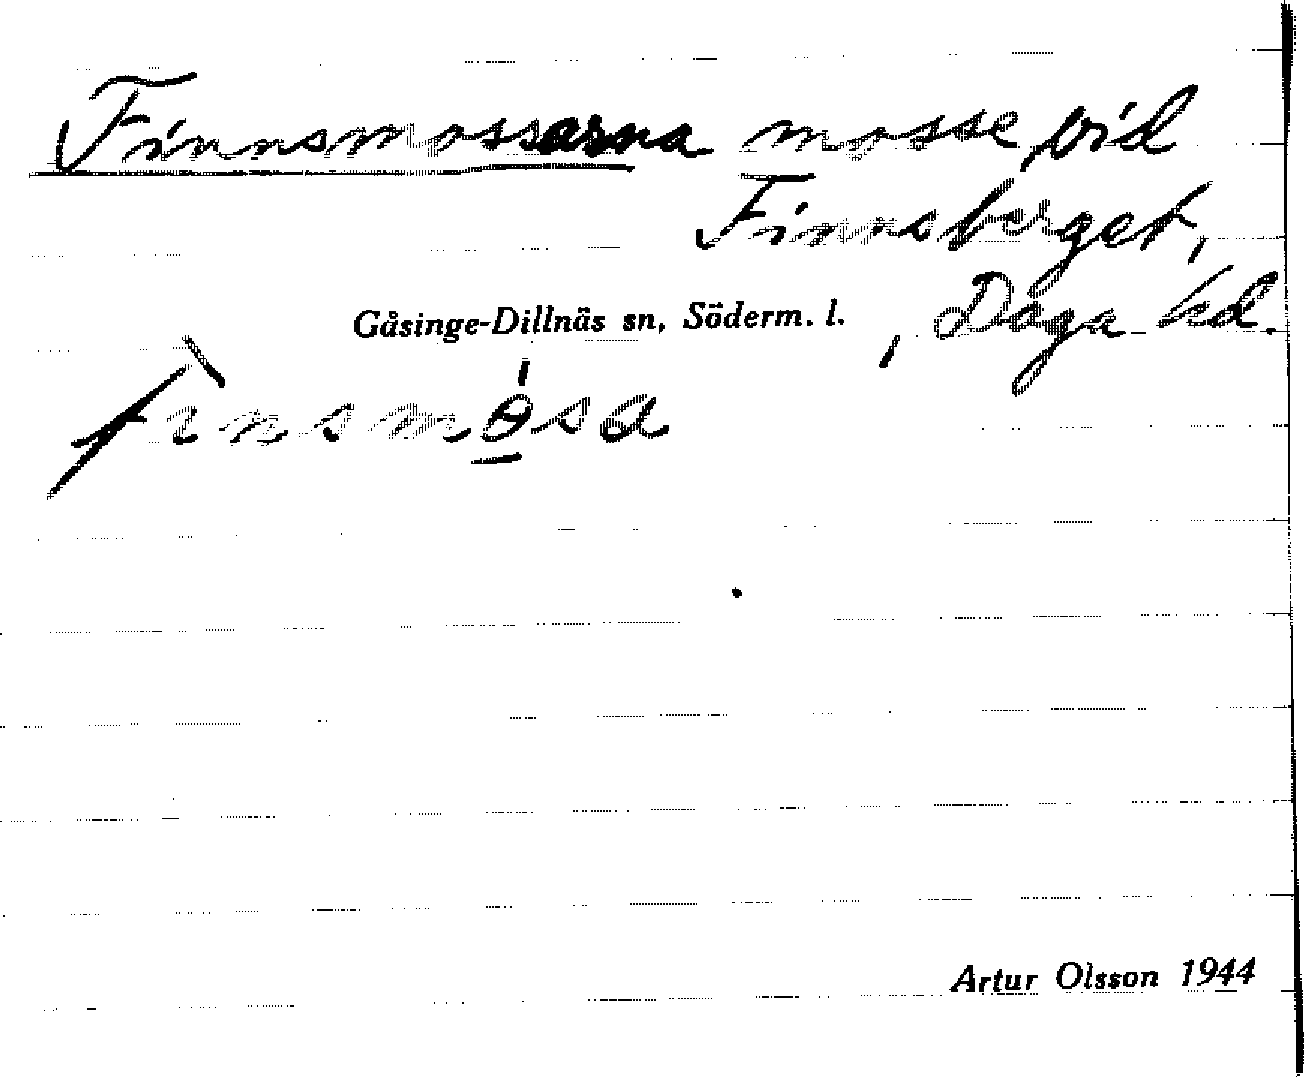 Finnsmossarna mosse, vid
Finnsberget,
Gåsinge-Dillnäs sn, Söderm. l. , Daga hd.
fìnsmɵ́sa
Artur Olsson 1944